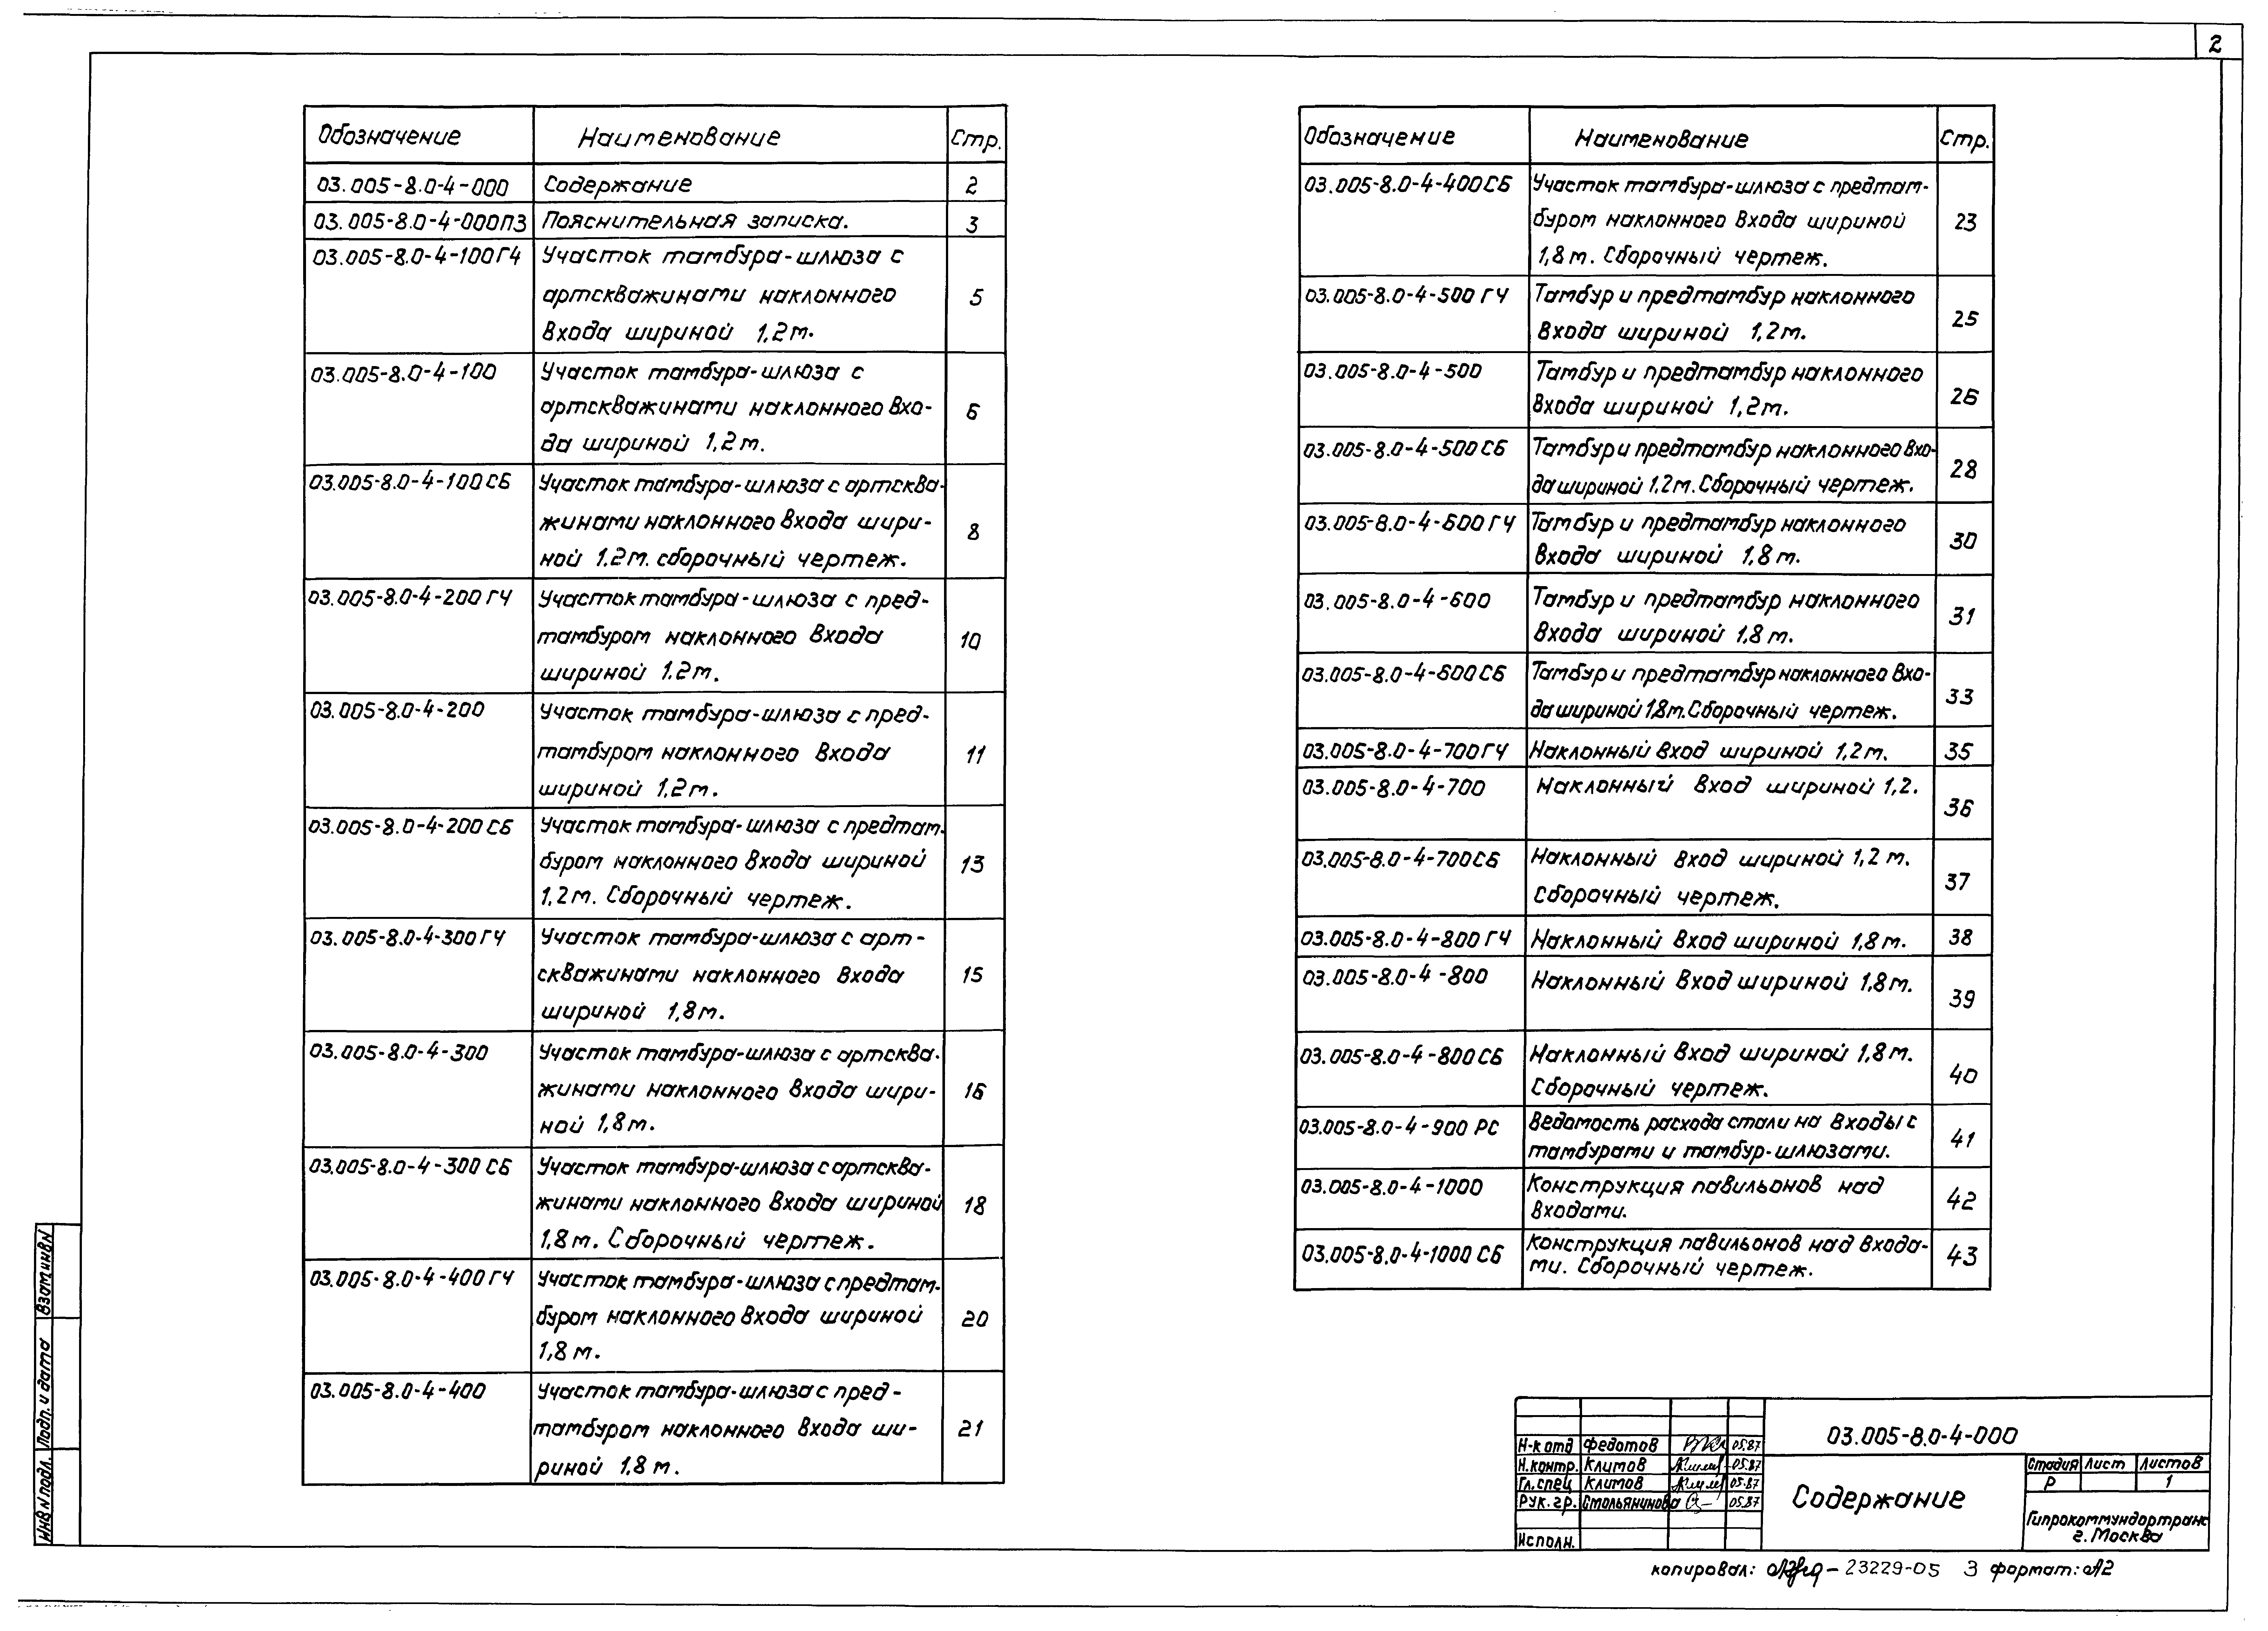 2
Обозначение Наименование Стр.
03.005-8.0-4-000 Содержание 2
03.005-8.0-4-000ПЗ Пояснительная записка. 3
03.005-8.0-4-100ГЧ Участок тамбура-шлюза с
артскважинами наклонного 5
входа шириной 1,2м.
03.005-8.0-4-100 Участок тамбура-шлюза с
артскважинами наклонного вхо- 6
да шириной 1,2м.
03.005-8.0-4-100СБ Участок тамбура-шлюза с артсква-
жинами наклонного входа шири- 8
ной 1.2м. сборочный чертеж.
03.005-8.0-4-200ГЧ Участок тамбура-шлюза с пред-
тамбуром наклонного входа 10
шириной 1.2м.
03.005-8.0-4-200 Участок тамбура-шлюза с пред-
тамбуром наклонного входа 11
шириной 1,2м.
03.005-8.0-4-200СБ Участок тамбура-шлюза с предтам-
буром наклонного входа шириной 13
1,2м. Сборочный чертеж.
03.005-8.0-4-300ГЧ Участок тамбура-шлюза с арт-
скважинами наклонного входа 15
шириной 1,8м.
03.005-8.0-4-300 Участок тамбура-шлюза с артсква-
жинами наклонного входа шири- 16
ной 1,8м.
03.005-8.0-4-300СБ Участок тамбура-шлюза с артсква-
жинами наклонного входа шириной 18
1,8м. Сборочный чертеж.
03.005-8.0-4-400ГЧ Участок тамбура-шлюза с предтам-
буром наклонного входа шириной 20
1,8м.
03.005-8.0-4-400 Участок тамбура-шлюза с пред-
тамбуром наклонного входа ши- 21
риной 1,8м.
Обозначение Наименование Стр.
03.005-8.0-4-400СБ Участок тамбура-шлюза с предтам-
буром наклонного входа шириной 23
1,8м. Сборочный чертеж.
03.005-8.0-4-500ГЧ Тамбур и предтамбур наклонного 25
входа шириной 1,2м.
03.005-8.0-4-500 Тамбур и предтамбур наклонного 26
входа шириной 1,2м.
03.005-8.0-4-500СБ Тамбур и предтамбур наклонного вхо- 28
да шириной 1,2м. Сборочный чертеж.
03.005-8.0-4-600ГЧ Тамбур и предтамбур наклонного 30
входа шириной 1,8м.
03.005-8.0-4-600 Тамбур и предтамбур наклонного 31
входа шириной 1,8м.
03.005-8.0-4-600СБ Тамбур и предтамбур наклонного вхо- 33
да шириной 1,8м. Сборочный чертеж.
03.005-8.0-4-700ГЧ Наклонный вход шириной 1,2м. 35
03.005-8.0-4-700 Наклонный вход шириной 1,2. 36
03.005-8.0-4-700СБ Наклонный вход шириной 1,2м. 37
Сборочный чертеж.
03.005-8.0-4-800ГЧ Наклонный вход шириной 1,8м. 38
03.005-8.0-4-800 Наклонный вход шириной 1,8м. 39
03.005-8.0-4-800СБ Наклонный вход шириной 1,8м. 40
Сборочный чертеж.
03.005-8.0-4-900 РС Ведомость расхода стали на входы с 41
тамбурами и тамбур-шлюзами.
03.005-8.0-4-1000 Конструкция павильонов над 42
входами.
03.005-8.0-4-1000СБ Конструкция павильонов над входа- 43
ми. Сборочный чертеж.
Взам инв N
Подп. и дата
Инв N подл.
Н-к отд Федотов 05.87
Н.контр. Климов 05.87
Гл.спец Климов 05.87
Рук.гр. Стольянинова 05.87
Исполн.
03.005-8.0-4-000
Содержание
Стадия Лист Листов
Р 1
Гипрокоммундортранс
г. Москва
копировал: 23229-05 3 формат: А2